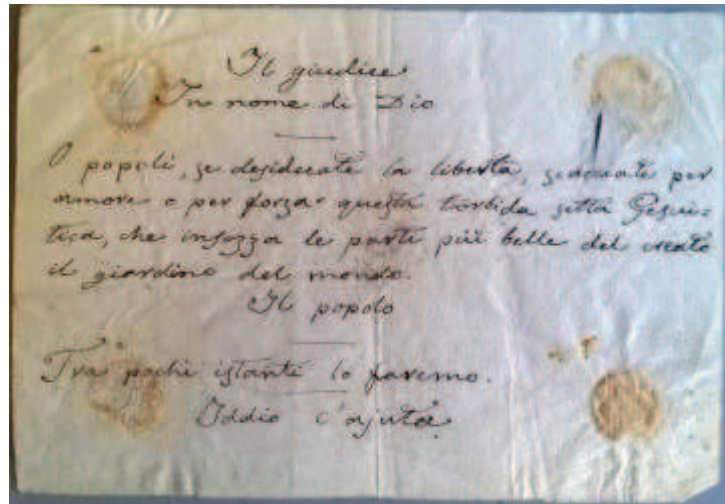 Il giudice
In nome di Dio
O popoli, se desiderate la libertà, scacciate per
amore o per forza questa torbida setta Gesui-
tica, che insozza le parti più belle del creato
il giardino del mondo.
Il popolo
Tra pochi istanti lo faremo.
Iddio c'ajuta